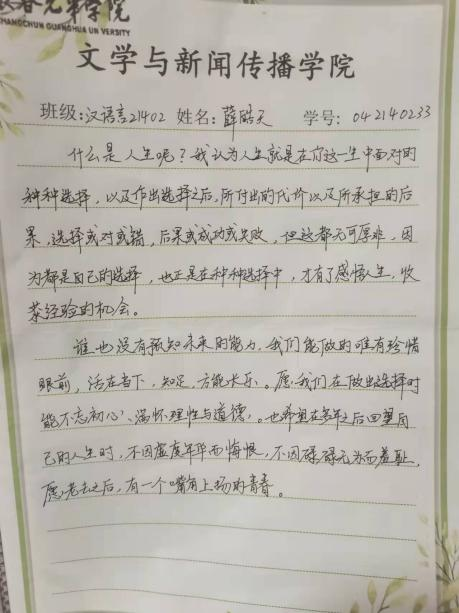 长春光华学院
CHANGCHUN GUANGHUA UNIVERSITY
文学与新闻传播学院
班级:汉语言21402 姓名:薛皓天 学号:042140233
什么是人生呢?我认为人生就是在你这一生中面对的
种种选择,以及作出选择之后,所付出的代价以及所承担的后
果,选择或对或错,后果或成功或失败,但这都无可厚非,因
为都是自己的选择,也正是在种种选择中,才有了感悟人生,收
获经验的机会。
谁也没有预知未来的能力,我们能做的唯有珍惜
眼前,活在当下,知足,方能长乐。愿我们在做出选择时
能不忘初心、满怀理性与道德,。也希望在多年之后回望自
己的人生时,不因虚度年华而悔恨,不因碌碌无为而羞耻,
愿老去之后,有一个嘴角上扬的青春。